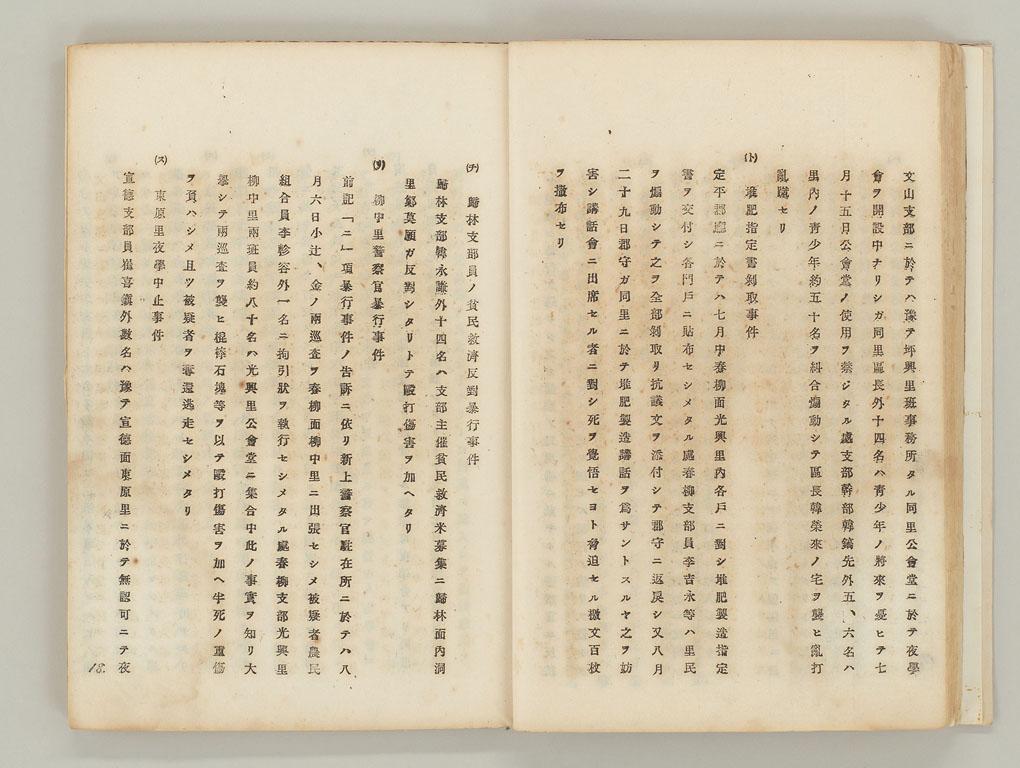 文山支部ニ於テハ豫テ坪興里班事務所タル同里公會堂ニ於テ夜學
會ヲ開設中ナリシガ同里區長外十四名ハ靑少年ノ將來ヲ憂ヒテ七
月十五日公會堂ノ使用ヲ禁ジタル處支部幹部韓鎬先外五、六名ハ
里內ノ靑少年約五十名ヲ糾合煽動シテ區長韓榮來ノ宅ヲ襲ヒ亂打
亂蹴セリ
(ト) 堆肥指定書剝取事件
定平郡廳ニ於テハ七月中春柳面光興里內各戶ニ對シ堆肥製造指定
書ヲ交付シ各門戶ニ貼布セシメタル處春柳支部員李吉永等ハ里民
ヲ煽動シテ之ヲ全部剝取リ抗議文ヲ添付シテ郡守ニ返戾シ又八月
二十九日郡守ガ同里ニ於テ堆肥製造講話ヲ爲サントスルヤ之ヲ妨
害シ講話會ニ出席セル者ニ對シ死ヲ覺悟セヨト脅迫セル檄文百枚
ヲ撒布セリ
(チ) 歸林支部員ノ貧民救濟反對暴行事件
歸林支部韓永謙外十四名ハ支部主催貧民救濟米募集ニ歸林面內洞
里鄒莫願ガ反對シタリトテ毆打傷害ヲ加ヘタリ
(リ) 柳中里警察官暴行事件
前記「ニ」項暴行事件ノ告訴ニ依リ新上警察官駐在所ニ於テハ八
月六日小辻、金ノ兩巡査ヲ春柳面柳中里ニ出張セシメ被疑者農民
組合員李 容外一名ニ拘引狀ヲ執行セシメタル處春柳支部光興里
柳中里兩班員約八十名ハ光興里公會堂ニ集合中此ノ事實ヲ知リ大
擧シテ兩巡査ヲ襲ヒ棍棒石塊等ヲ以テ毆打傷害ヲ加ヘ半死ノ重傷
ヲ負ハシメ且ツ被疑者ヲ奪還逃走セシメタリ
(ヌ) 東原里夜學中止事件
宣德支部員崔喜 外數名ハ豫テ宣德面東原里ニ於テ無認可ニテ夜
18.